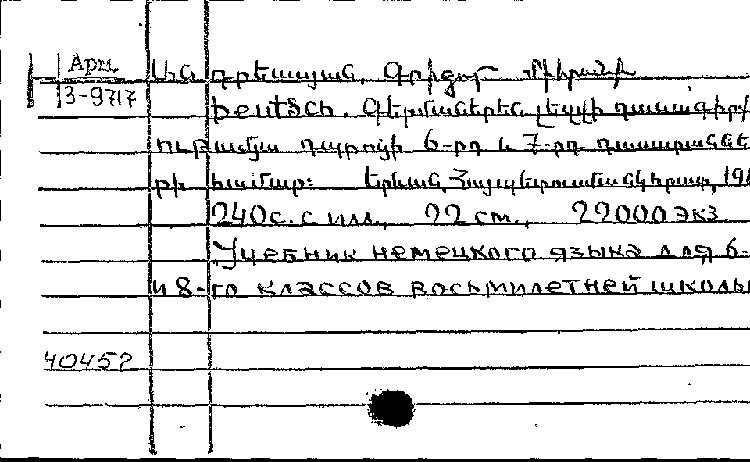 Арм.
3-9717
գրեասյան, Գրիգոր Միրանի
Deutsch. Գերմաներեն լեզվի դասագիրք
ութամյա դպրոցի 6-րդ և 7-րդ դասարաննե
րի համար: Երևան, Հայպետուսմանկհրատ, 196
240с. с ил., 22 cm., 22000 экз
Учебник немецкого языка для 6-
и 8-го классов восьмилетней школы
40452